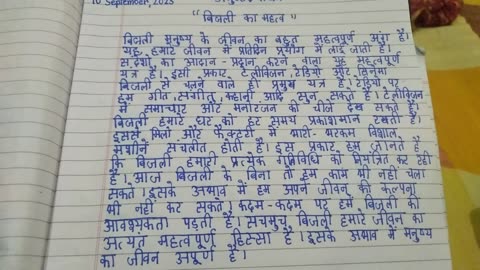 10 September, 2025
"बिजली का महत्व"
बिजली मनुष्य के जीवन का बहुत महत्वपूर्ण अंग है।
यह हमारे जीवन में प्रतिदिन प्रयोग में लाई जाती है।
संदेशों का आदान-प्रदान करने वाला यह महत्वपूर्ण
यंत्र है। इसी प्रकार टेलीविजन, रेडियो और सिनेमा
बिजली से चलने वाले ही प्रमुख यंत्र है। रेडियो पर
हम गीत, संगीत, कहानी आदि सुन सकते है। टेलीविजन
में समाचार और मनोरंजन की चीजे देख सकते है।
बिजली हमारे घर को हर समय प्रकाशमान रखती है।
इससे मिलो और फैक्टरी में भारी-भरकम विशाल
मशीने संचलीत होती है। इस प्रकार हम जानते है
कि बिजली हमारी प्रत्येक गतिविधि को नियंत्रित कर रही
है। आज बिजली के बिना तो हम काम भी नहीं चला
सकते। इसके अभाव में हम अपने जीवन की कल्पना
भी नहीं कर सकते। कदम-कदम पर हमे बिजली की
आवश्यकता पड़ती है। सचमुच बिजली हमारे जीवन का
अत्यंत महत्वपूर्ण हिस्सा है। इसके अभाव में मनुष्य
का जीवन अपूर्ण है।